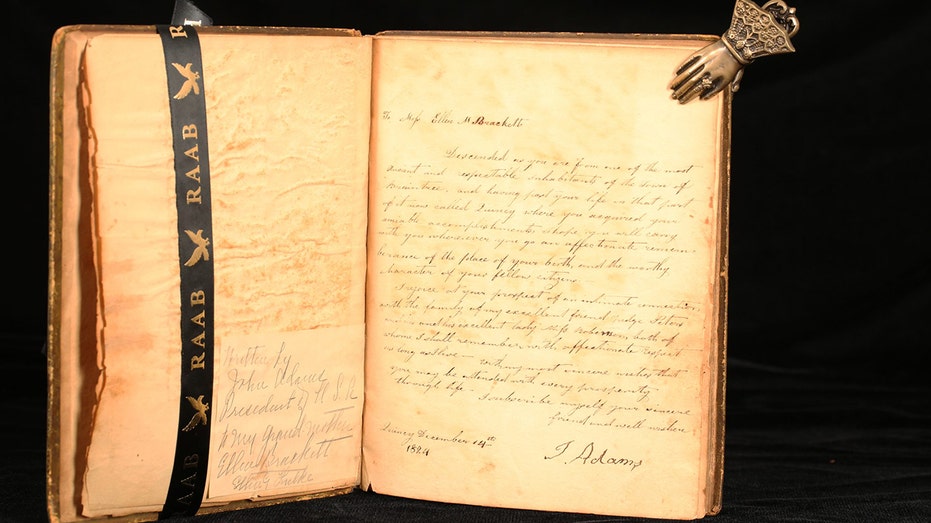 R
RAAB
RAAB
RAAB
AAB
Written by
John Adams
President of U.S.A
to my Grand mother
Ellen M Brackett
To Miss Ellen M Brackett
Descended as you are from one of the most
ancient and respectable inhabitants of the town of
Braintree, and having past your life in that part
of it now called Quincy where you acquired your
amiable accomplishments I hope you will carry
with you whersoever you go an affectionate remem-
berance of the place of your birth, and the worthy
character of your fellow citizens
I rejoice at your prospect of an intimate connection
with the family of my excellent friend Judge Peters
and his excellent lady Miss Robinson both of
whom I shall remember with affectionate respect
as long as I live — With my most sincere wishes that
you may be attended with every prosperity
through life I subscribe myself your sincere
friend and well wisher
Quincy December 14th
1824
J Adams